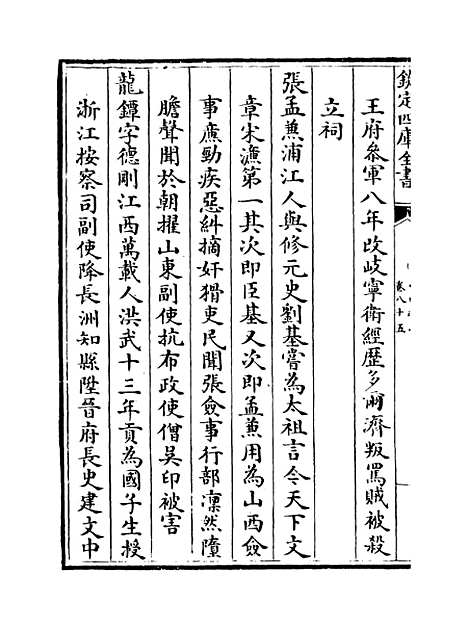 欽定四庫全書
卷八十五
王府叅軍八年改岐寧衛經歷多爾濟叛罵賊被殺
立祠
張孟蒹浦江人與修元史劉基嘗為太祖言今天下文
章宋濂第一其次即臣基又次即孟蒹用為山西僉
事廉勁疾惡糾摘奸猾吏民聞張僉事行部凜然隳
膽聲聞於朝擢山東副使抗布政使僧吳印被害
龍鐔字德剛江西萬載人洪武十三年貢為國子生授
浙江按察司副使降長洲知縣陞晉府長史建文中